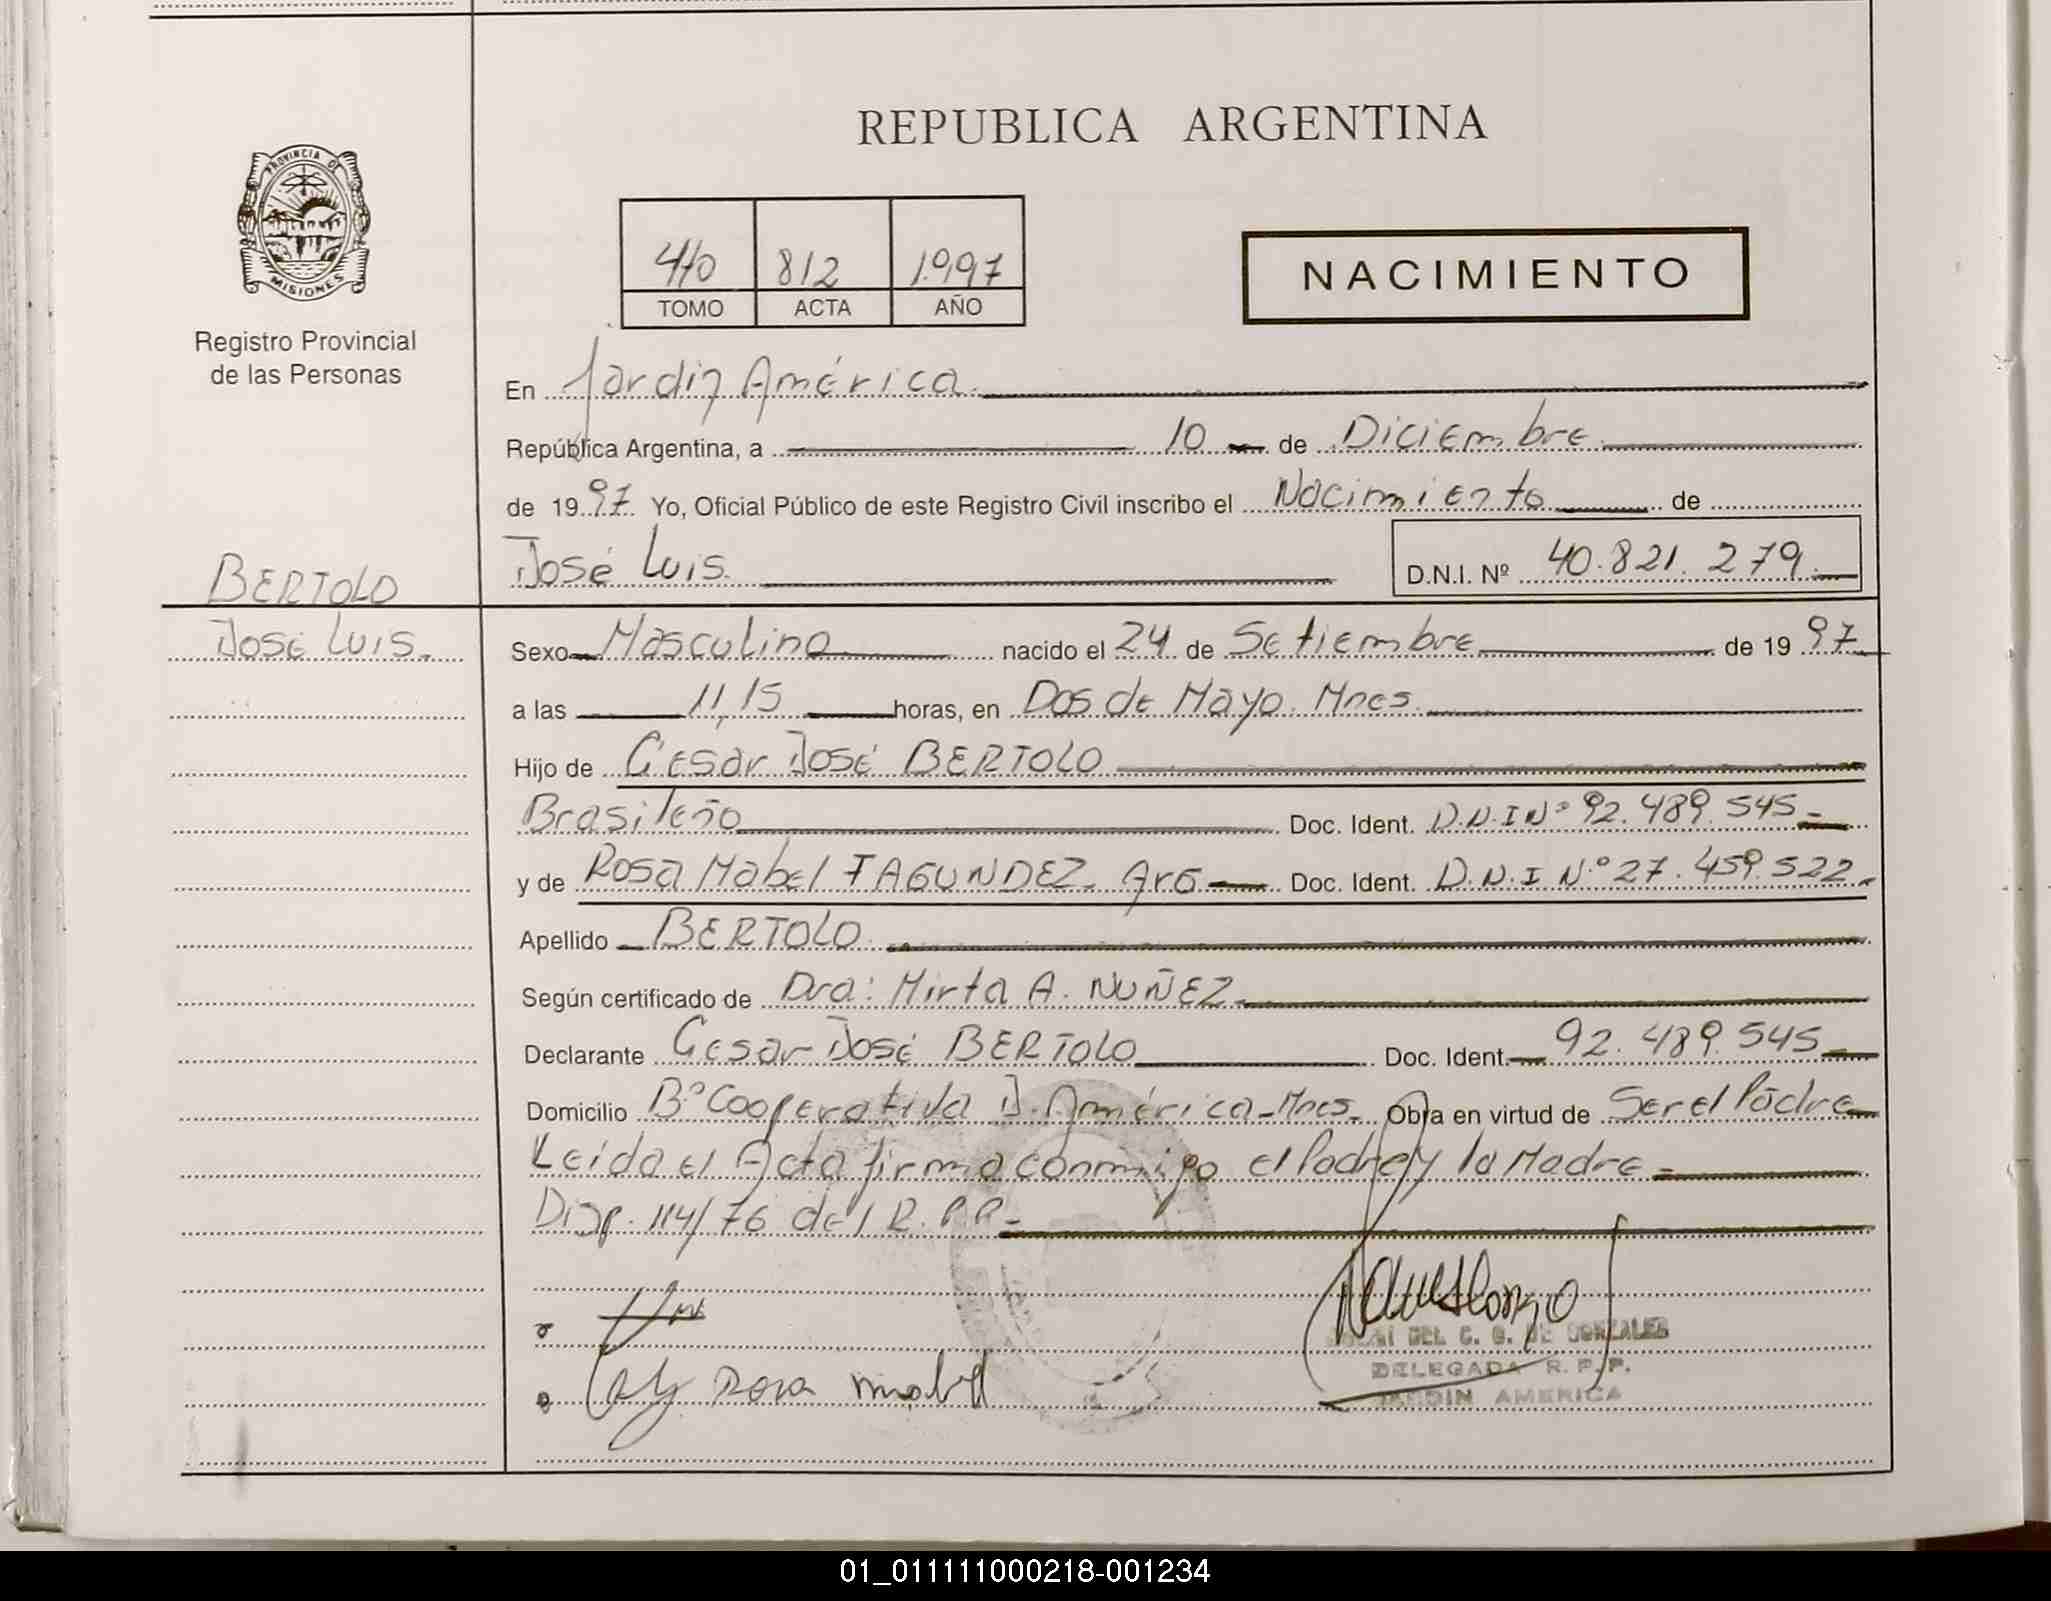 REPUBLICA ARGENTINA
PROVINCIA DE MISIONES
4to 812 1.997
TOMO ACTA AÑO
NACIMIENTO
Registro Provincial
de las Personas
En Jardin América.
República Argentina, a 10 de Diciembre
de 1997 Yo, Oficial Público de este Registro Civil inscribo el Nacimiento de
José Luis. D.N.I. Nº 40.821.279.
BERTOLO
José Luis.
Sexo Masculino nacido el 24 de Setiembre de 1997
a las 11,15 horas, en Dos de Mayo. Mnes.
Hijo de Cesar José BERTOLO
Brasileño Doc. Ident. D.N.I Nº 92.489.545-
y de Rosa Mabel FAGUNDEZ. Arg Doc. Ident. D.N.I N.º 27.459.522.
Apellido BERTOLO.
Según certificado de Dra: Mirta A. NUÑEZ.
Declarante Cesar José BERTOLO Doc. Ident. 92.489.545
Domicilio Bº Cooperativa J. América-Mnes. Obra en virtud de Ser el Padre
Leída el Acta firma conmigo el Padre y la Madre-
Disp. 114/76 del R.P.P.-
DEL C. G. DE GONZALES
DELEGADA R. P. P.
JARDIN AMERICA
Rosa mabel
01_011111000218-001234